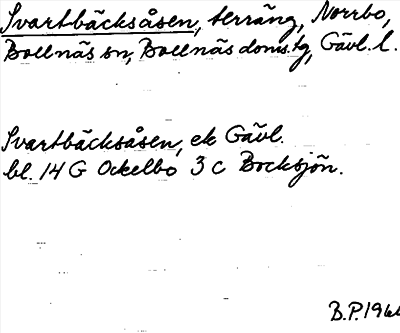 Svartbäcksåsen, terräng, Norrbo,
Bollnäs sn, Bollnäs doms.tg, Gävl. l.
Svartbäcksåsen, ek Gävl.
bl. 14 G Ockelbo 3 c Bocksjön.
B.P.